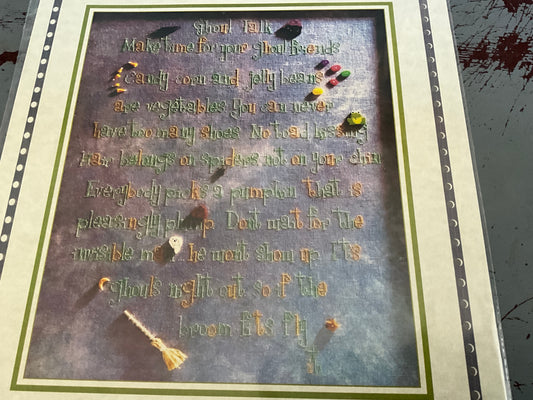 Ghoul Talk
Make time for your ghoul friends
Candy corn and jelly beans
are vegetables You can never
have too many shoes No toad kissing
Hair belongs on spiders not on your chin
Everybody picks a pumpkin that is
pleasingly plump Dont wait for the
invisible he wont show up Its
ghouls night out so if the
broom fits fly
it